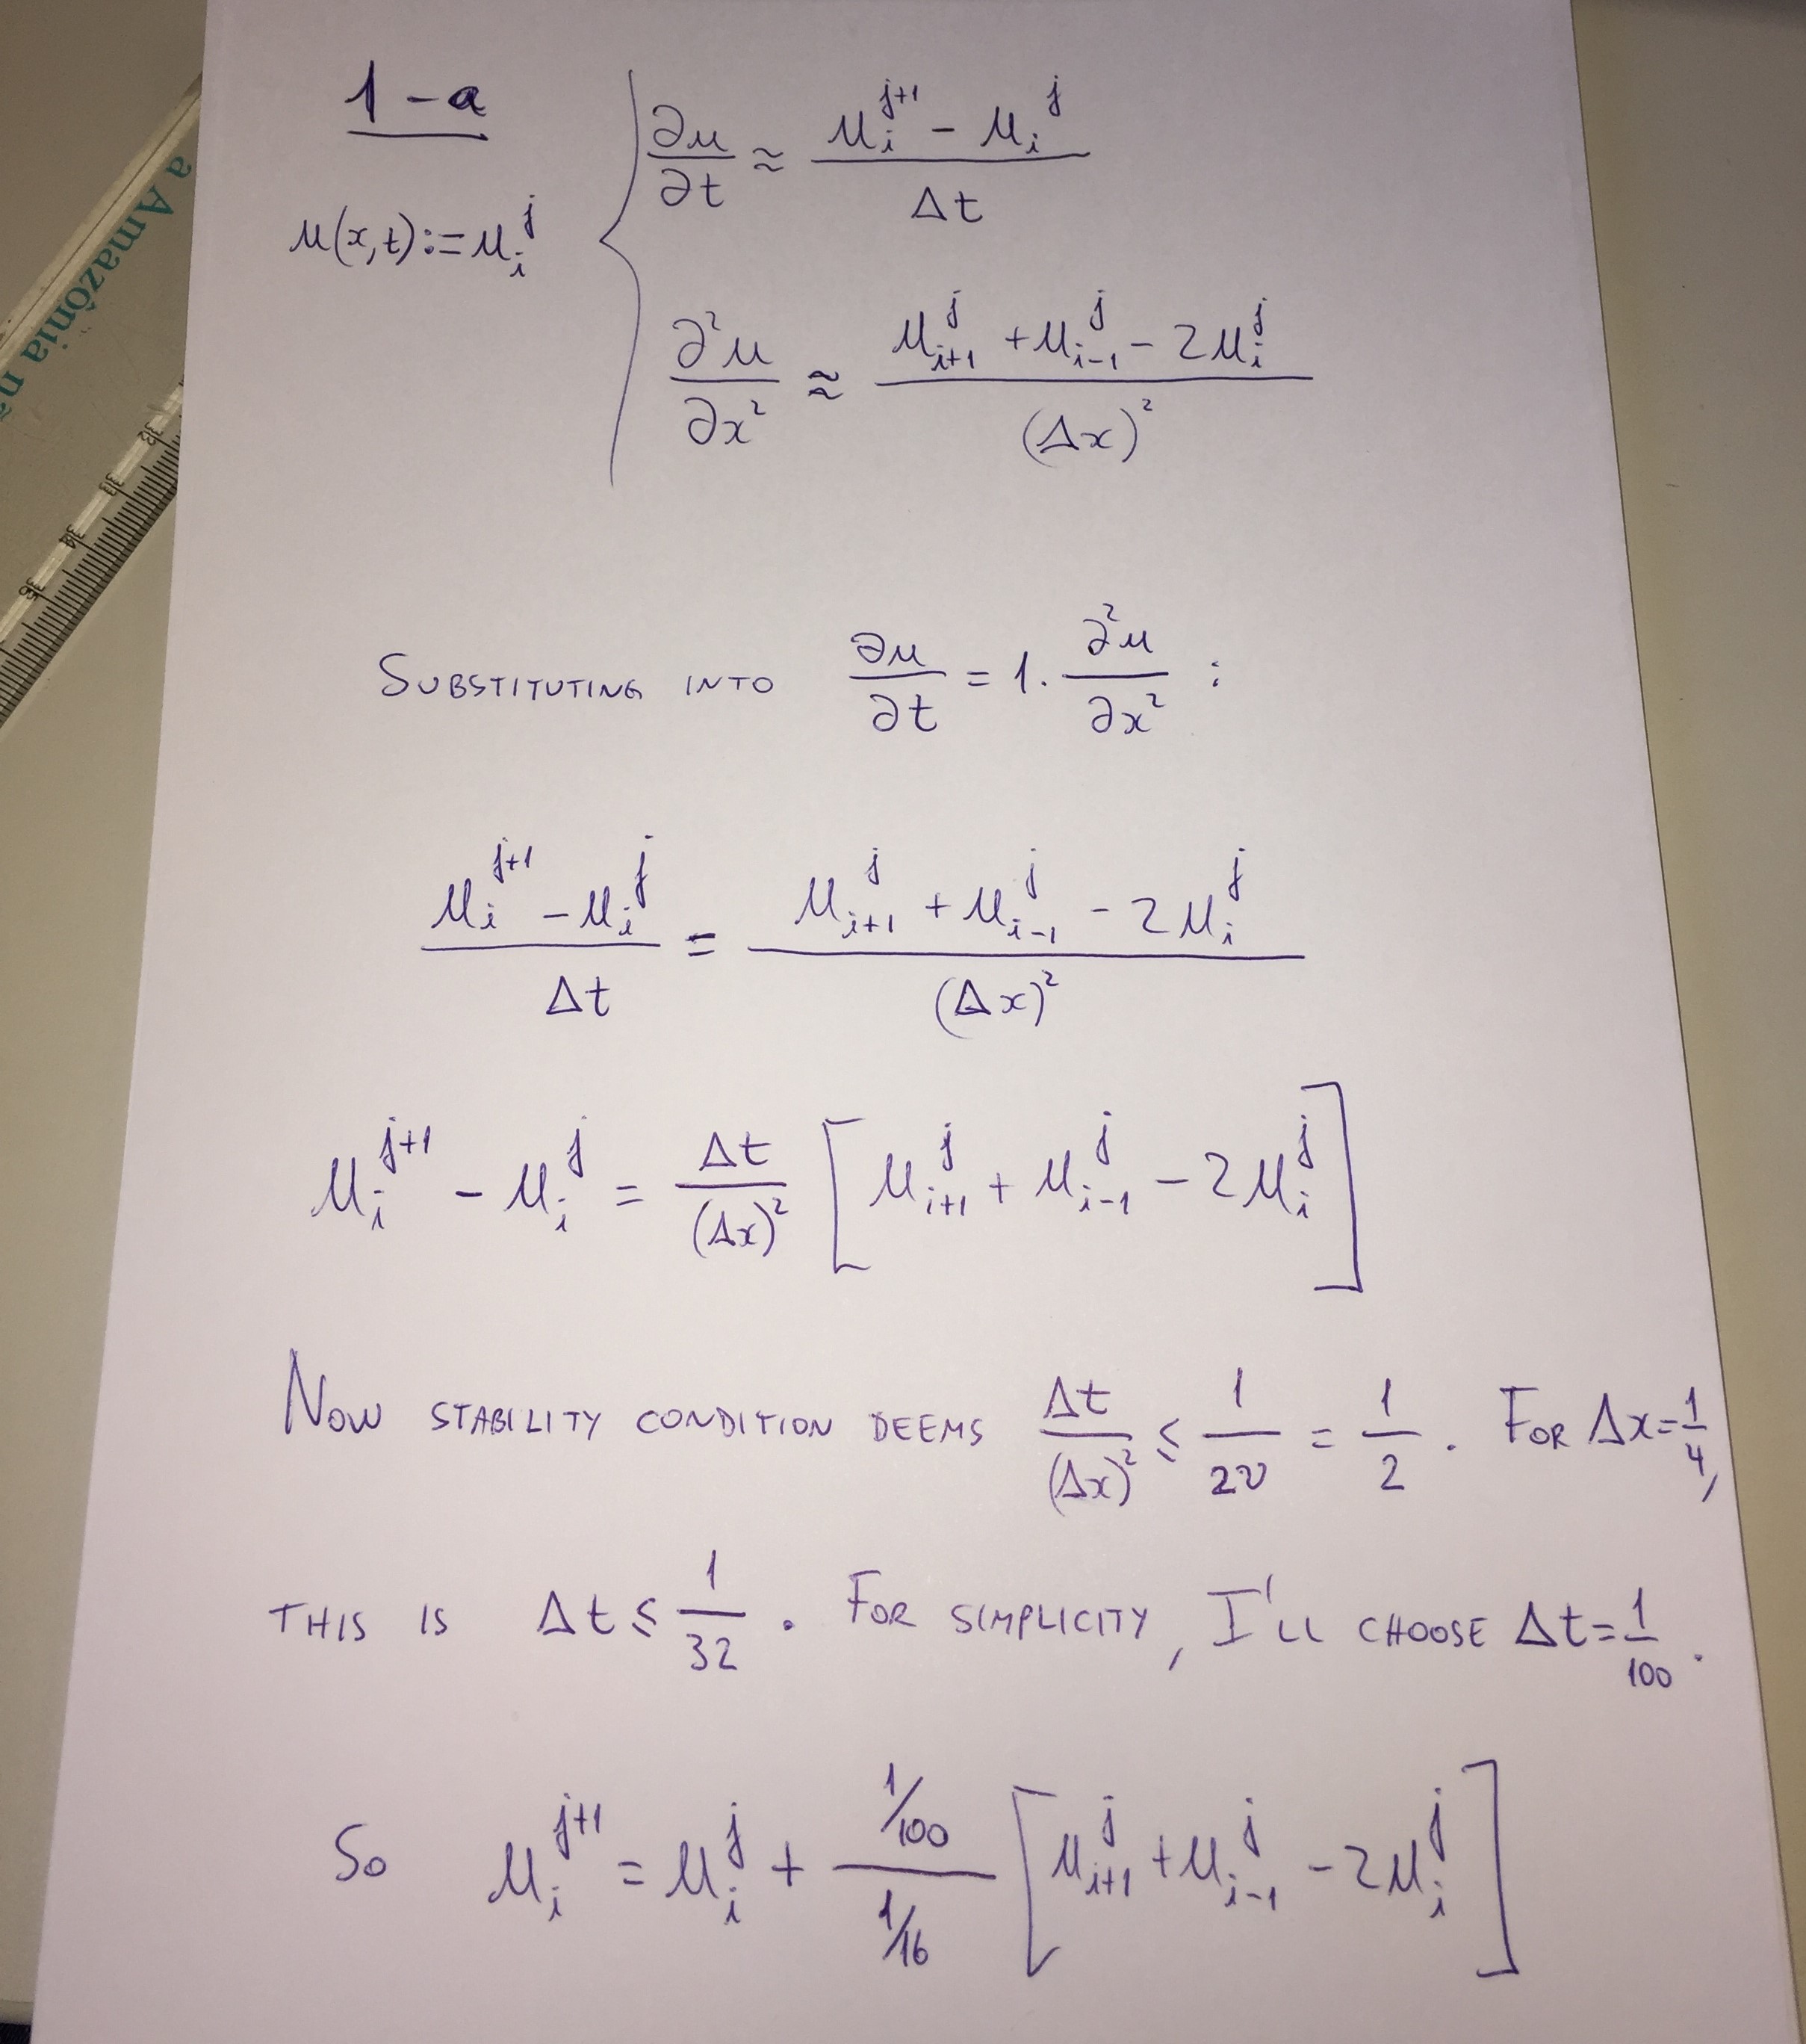 1-a
∂u/∂t ≈ (u_i^{j+1} - u_i^j)/Δt
u(x,t):=u_i^j
∂²u/∂x² ≈ (u_{i+1}^j + u_{i-1}^j - 2u_i^j)/(Δx)²
SUBSTITUTING INTO ∂u/∂t = 1. ∂²u/∂x² :
(u_i^{j+1} - u_i^j)/Δt = (u_{i+1}^j + u_{i-1}^j - 2u_i^j)/(Δx)²
u_i^{j+1} - u_i^j = Δt/(Δx)² [u_{i+1}^j + u_{i-1}^j - 2u_i^j]
NOW STABILITY CONDITION DEEMS Δt/(Δx)² ≤ 1/2ν = 1/2 . FOR Δx=1/4,
THIS IS Δt ≤ 1/32 . FOR SIMPLICITY, I'LL CHOOSE Δt=1/100 .
SO u_i^{j+1} = u_i^j + (1/100)/(1/16) [u_{i+1}^j + u_{i-1}^j - 2u_i^j]
a Amazônia n
32
33
34
36